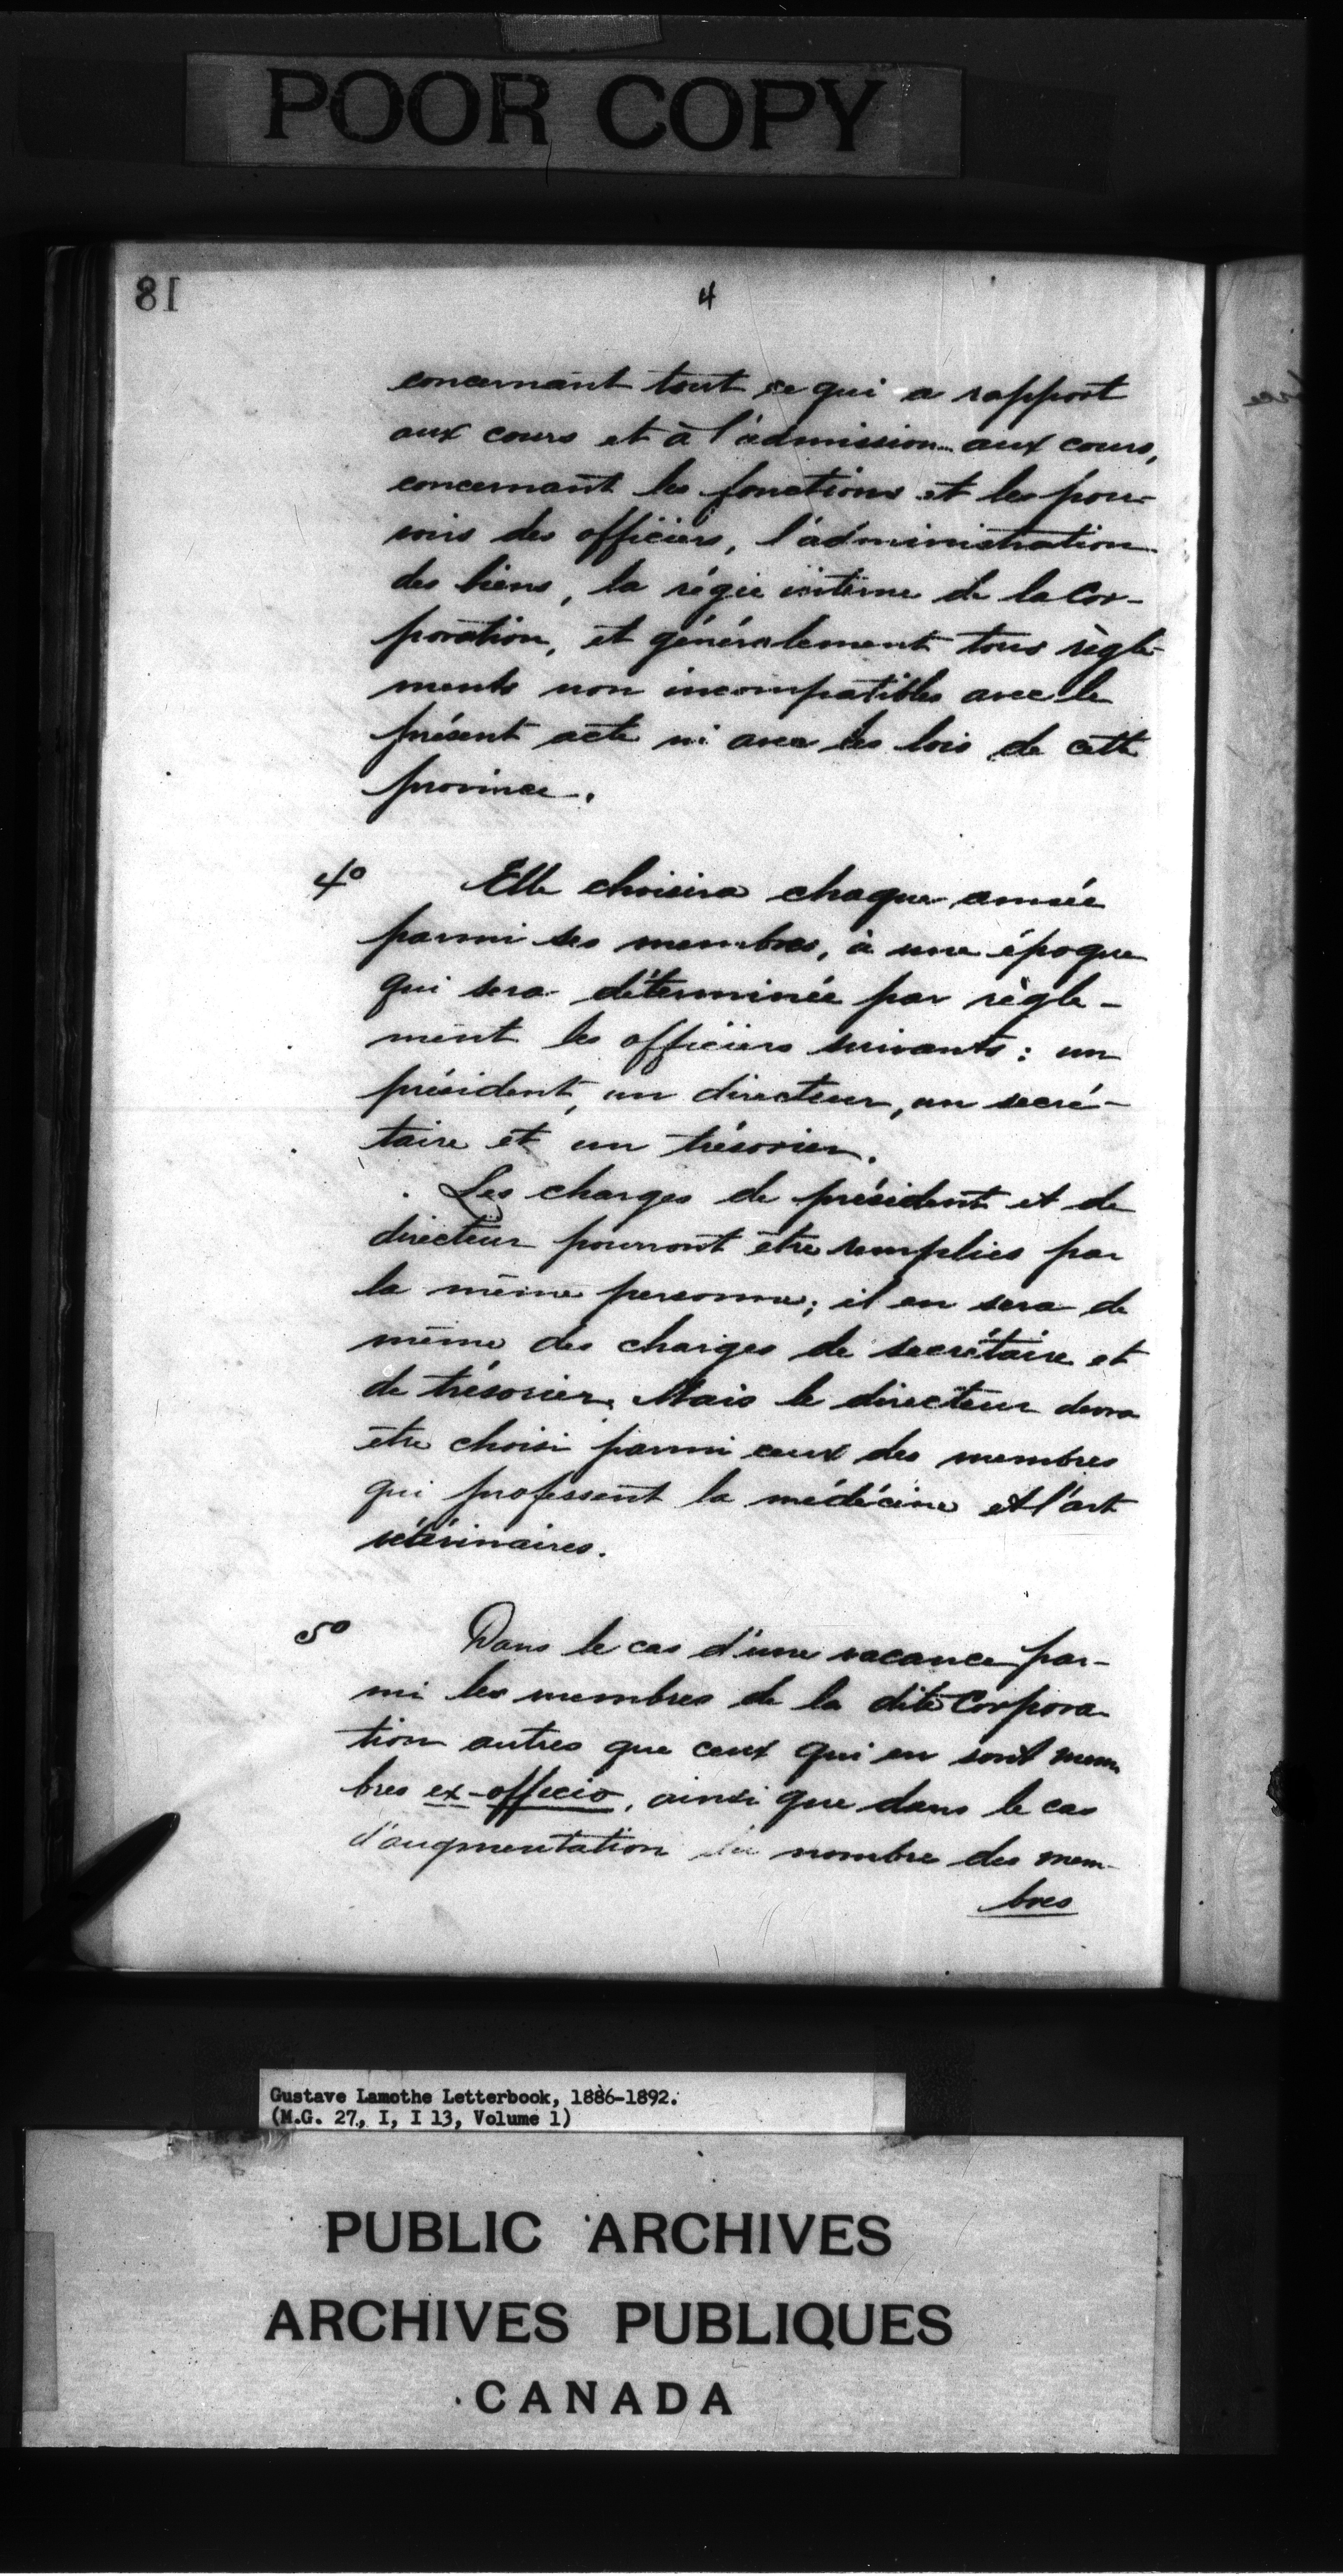 POOR COPY
18
4
concernant tout ce qui a rapport
aux cours et à l'admission aux cours,
concernant les fonctions et les pou-
voirs des officiers, l'administration
des biens, la régie interne de la Cor-
poration, et généralement tous règle-
ments non incompatibles avec le
présent acte ni avec les lois de cette
province.
4o Elle choisira chaque année
parmi ses membres, à une époque
qui sera déterminée par règle-
ment les officiers suivants : un
président, un directeur, un secré-
taire et un trésorier.
Les charges de président et de
directeur pourront être remplies par
la même personne; il en sera de
même des charges de secrétaire et
de trésorier. Mais le directeur devra
être choisi parmi ceux des membres
qui professent la médécine et l'art
vétérinaires.
5o Dans le cas d'une vacance par-
mi les membres de la dite Corpora-
tion autres que ceux qui en sont mem
bres ex-officio, ainsi que dans le cas
d'augmentation du nombre des mem-
bres
Gustave Lamothe Letterbook, 1886-1892.
(M.G. 27, I, I 13, Volume 1)
PUBLIC ARCHIVES
ARCHIVES PUBLIQUES
CANADA